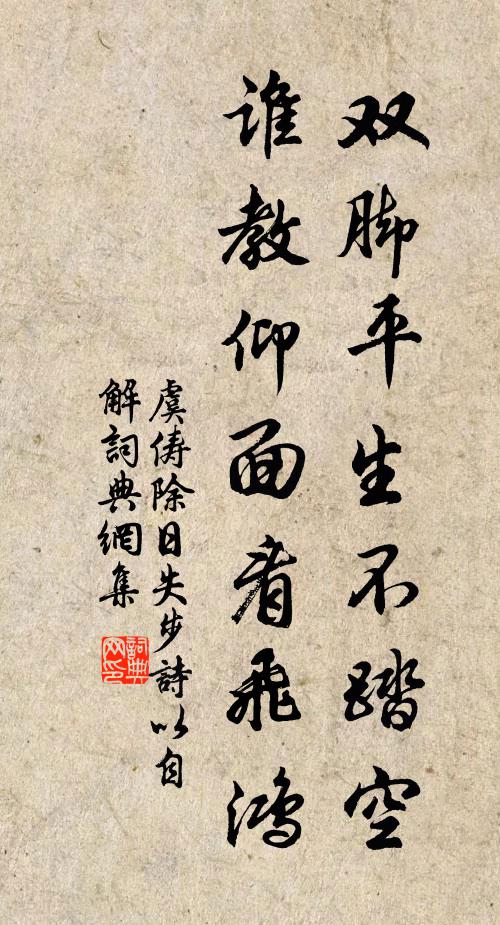 双脚平生不踏空
谁教仰面看飛鴻
虞儔除日失步詩以自
解詞典網集
詞典
网印